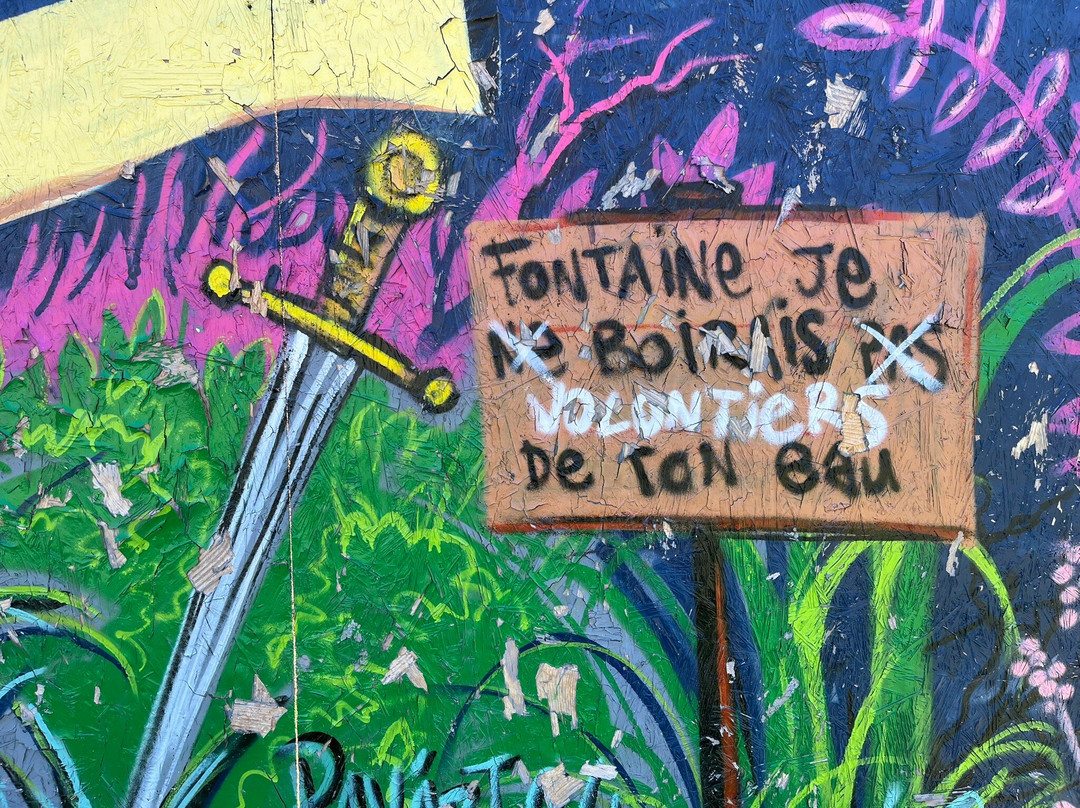 FONTAINE JE
Ne BOiRAiS PAS
VOLONTieRS
De TON eau